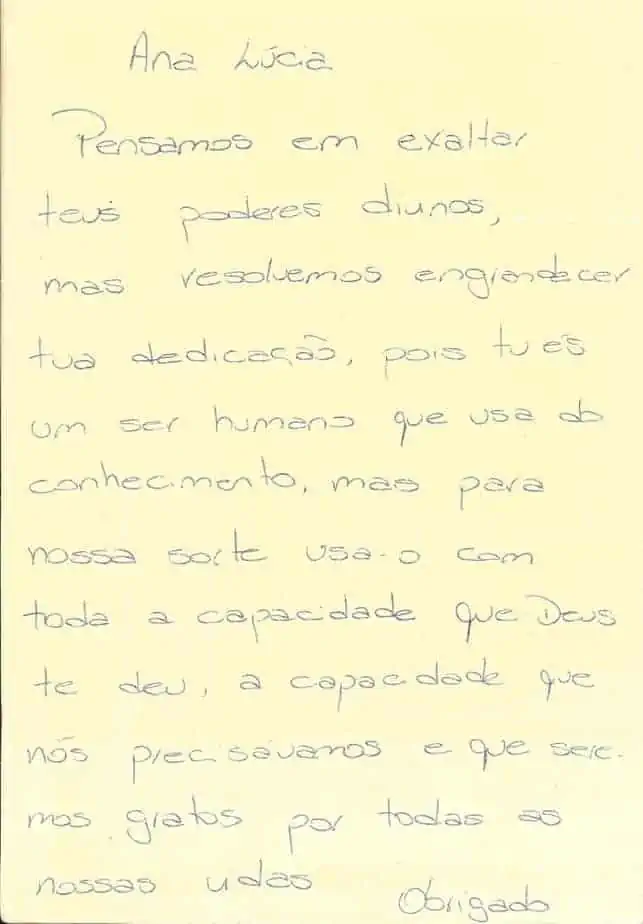 Ana Lúcia
Pensamos em exaltar
teus poderes divinos,
mas resolvemos engrandecer
tua dedicação, pois tu és
um ser humano que usa do
conhecimento, mas para
nossa sorte usa-o com
toda a capacidade que Deus
te deu, a capacidade que
nós precisávamos e que sere-
mos gratos por todas as
nossas vidas
Obrigado